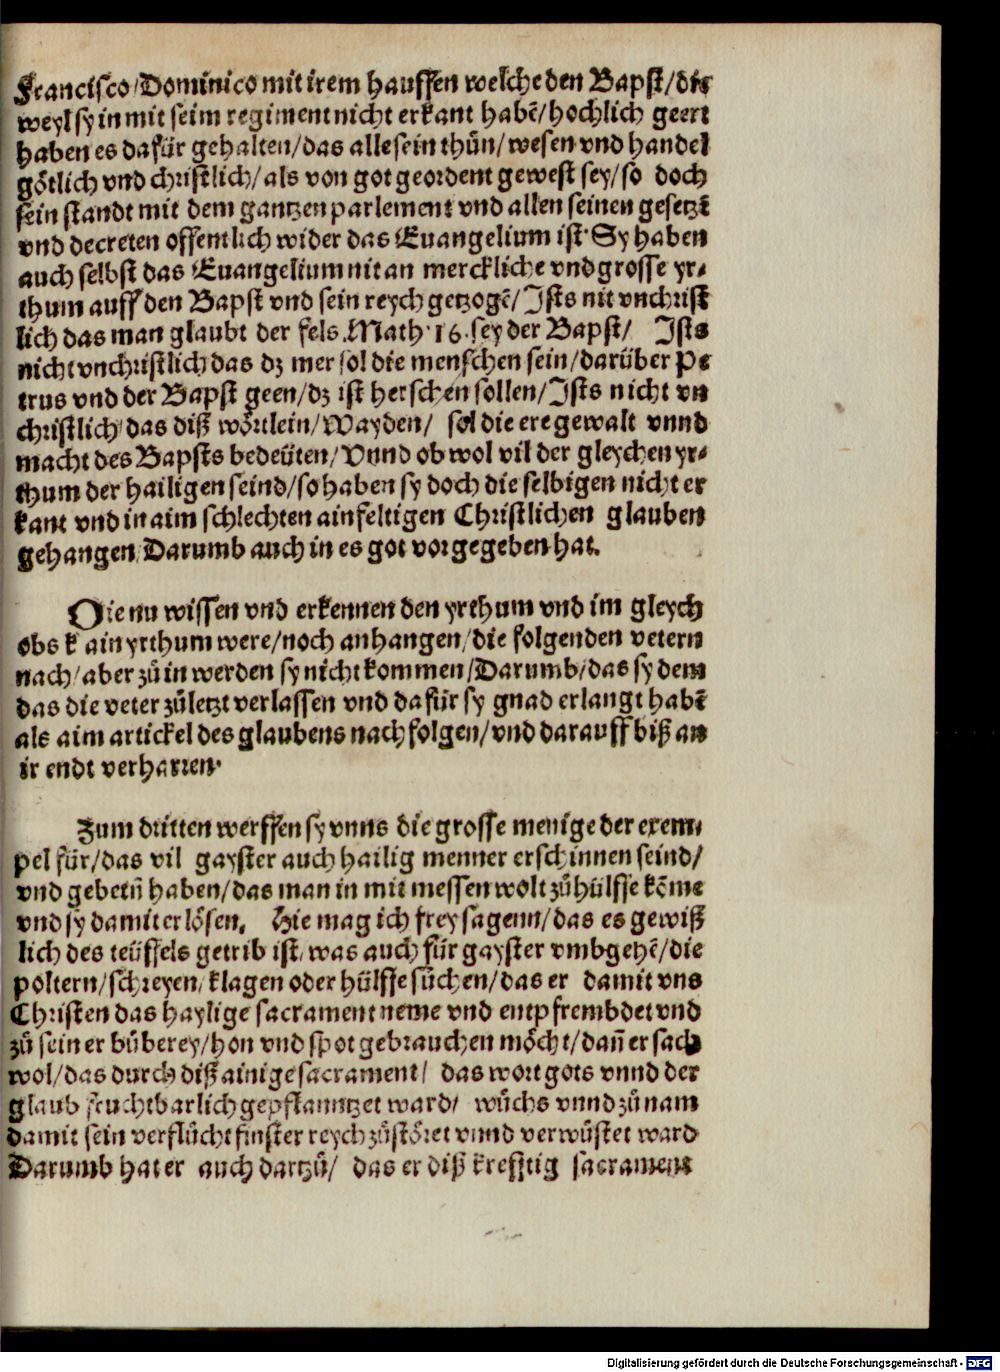 Francisco/Dominico mit irem hauffen welche den Bapst/die
weyl sy in mit seim regiment nicht erkant habē/hochlich geert
haben es dafür gehalten/das alle sein thůn/wesen vnd handel
götlich vnd christlich/als von got geordent gewest sey/so doch
sein standt mit dem gantzen parlement vnd allen seinen gesetzē
vnd decreten offentlich wider das Euangelium ist· Sy haben
auch selbst das Euangelium nit an merckliche vnd grosse yr-
thum auff den Bapst vnd sein reych getzogē/Ists nit vnchrist
lich das man glaubt der fels Math·16·sey der Bapst/ Ists
nicht vnchristlich das dz mer sol die menschen sein/darüber Pe
trus vnd der Bapst geen/dz ist herschen sollen/Ists nicht vn
christlich/das diß wörtlein/Wayden/ sol die ere gewalt vnnd
macht des Bapsts bedeüten/Vnnd ob wol vil der gleychen yr-
thum der hailigen seind/so haben sy doch die selbigen nicht er
kant vnd in aim schlechten ainfeltigen Christlichen glauben
gehangen/Darumb auch in es got vorgegeben hat.
Die nu wissen vnd erkennen den yrthum vnd im gleych
obs kain yrthum were/noch anhangen/die folgenden vetern
nach/aber zů in werden sy nicht kommen/Darumb/das sy dem
das die veter zůletzt verlassen vnd dafür sy gnad erlangt habē
als aim artickel des glaubens nachfolgen/vnd darauff biß an
ir endt verharren·
Zum dritten werffen sy vnns die grosse menige der exem-
pel für/das vil gayster auch hailig menner erschinnen seind/
vnd gebetñ haben/das man in mit messen wolt zů hülffe kēme
vnd sy damit erlösen. Hie mag ich frey sagenn/das es gewiß
lich des teüffels getrib ist/was auch für gayster vmbgehē/die
poltern/schreyen/klagen oder hülffe sůchen/das er damit vns
Christen das haylige sacrament neme vnd entpfrembdet vnd
zů seiner bůberey/hon vnd spot gebrauchen möcht/dañ er sach
wol/das durch diß ainige sacrament/ das wort gots vnnd der
glaub fruchtbarlich gepflanntzet ward/ wůchs vnnd zů nam
damit sein verflůcht finster reych zůstöret vnnd verwůstet ward
Darumb hat er auch dartzů/ das er diß krefftig sacrament
Digitalisierung gefördert durch die Deutsche Forschungsgemeinschaft - DFG